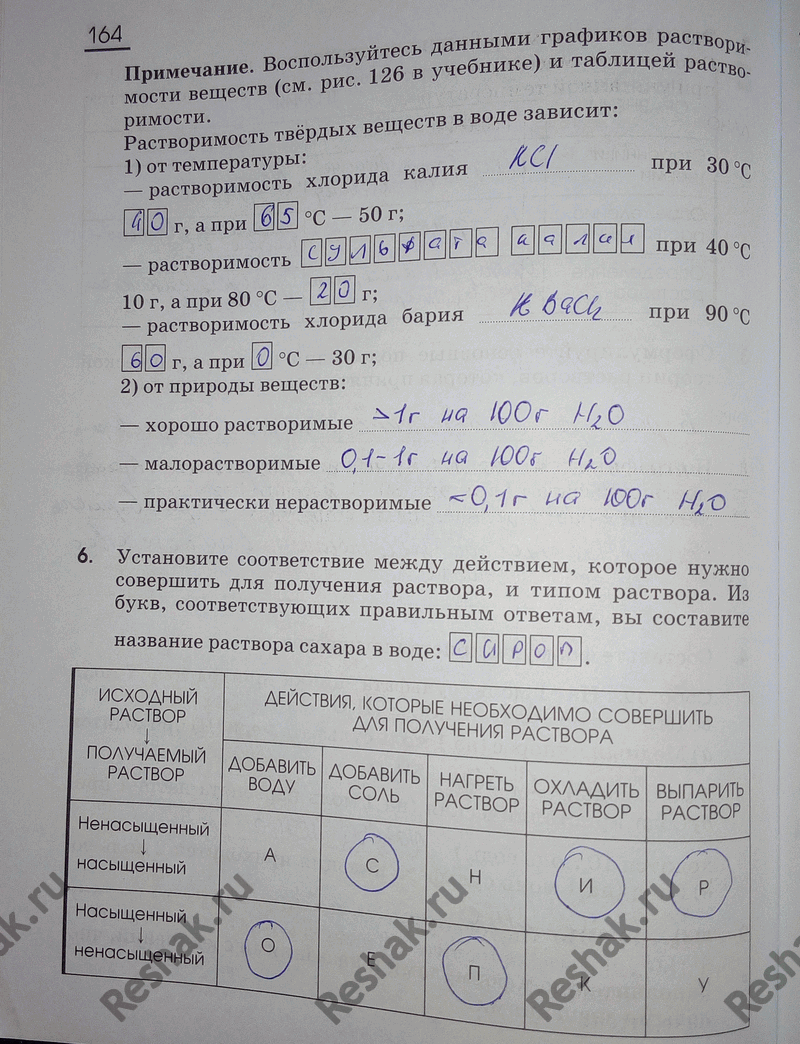 164
Примечание. Воспользуйтесь данными графиков раствори-
мости веществ (см. рис. 126 в учебнике) и таблицей раство-
римости.
Растворимость твёрдых веществ в воде зависит:
1) от температуры:
— растворимость хлорида калия KCl при 30 °С
40 г, а при 65 °С — 50 г;
— растворимость сульфата калия при 40 °С
10 г, а при 80 °С — 20 г;
— растворимость хлорида бария BaCl₂ при 90 °С
60 г, а при 0 °С — 30 г;
2) от природы веществ:
— хорошо растворимые >1г на 100г H₂O
— малорастворимые 0,1-1г на 100г H₂O
— практически нерастворимые <0,1г на 100г H₂O
6. Установите соответствие между действием, которое нужно
совершить для получения раствора, и типом раствора. Из
букв, соответствующих правильным ответам, вы составите
название раствора сахара в воде: СИРОП.
ИСХОДНЫЙ РАСТВОР ↓ ПОЛУЧАЕМЫЙ РАСТВОР
ДЕЙСТВИЯ, КОТОРЫЕ НЕОБХОДИМО СОВЕРШИТЬ
ДЛЯ ПОЛУЧЕНИЯ РАСТВОРА
ДОБАВИТЬ ВОДУ
ДОБАВИТЬ СОЛЬ
НАГРЕТЬ РАСТВОР
ОХЛАДИТЬ РАСТВОР
ВЫПАРИТЬ РАСТВОР
Ненасыщенный ↓ насыщенный
А С Н И Р
Насыщенный ↓ ненасыщенный
О Е П К У
Reshak.ru Reshak.ru Reshak.ru Reshak.ru